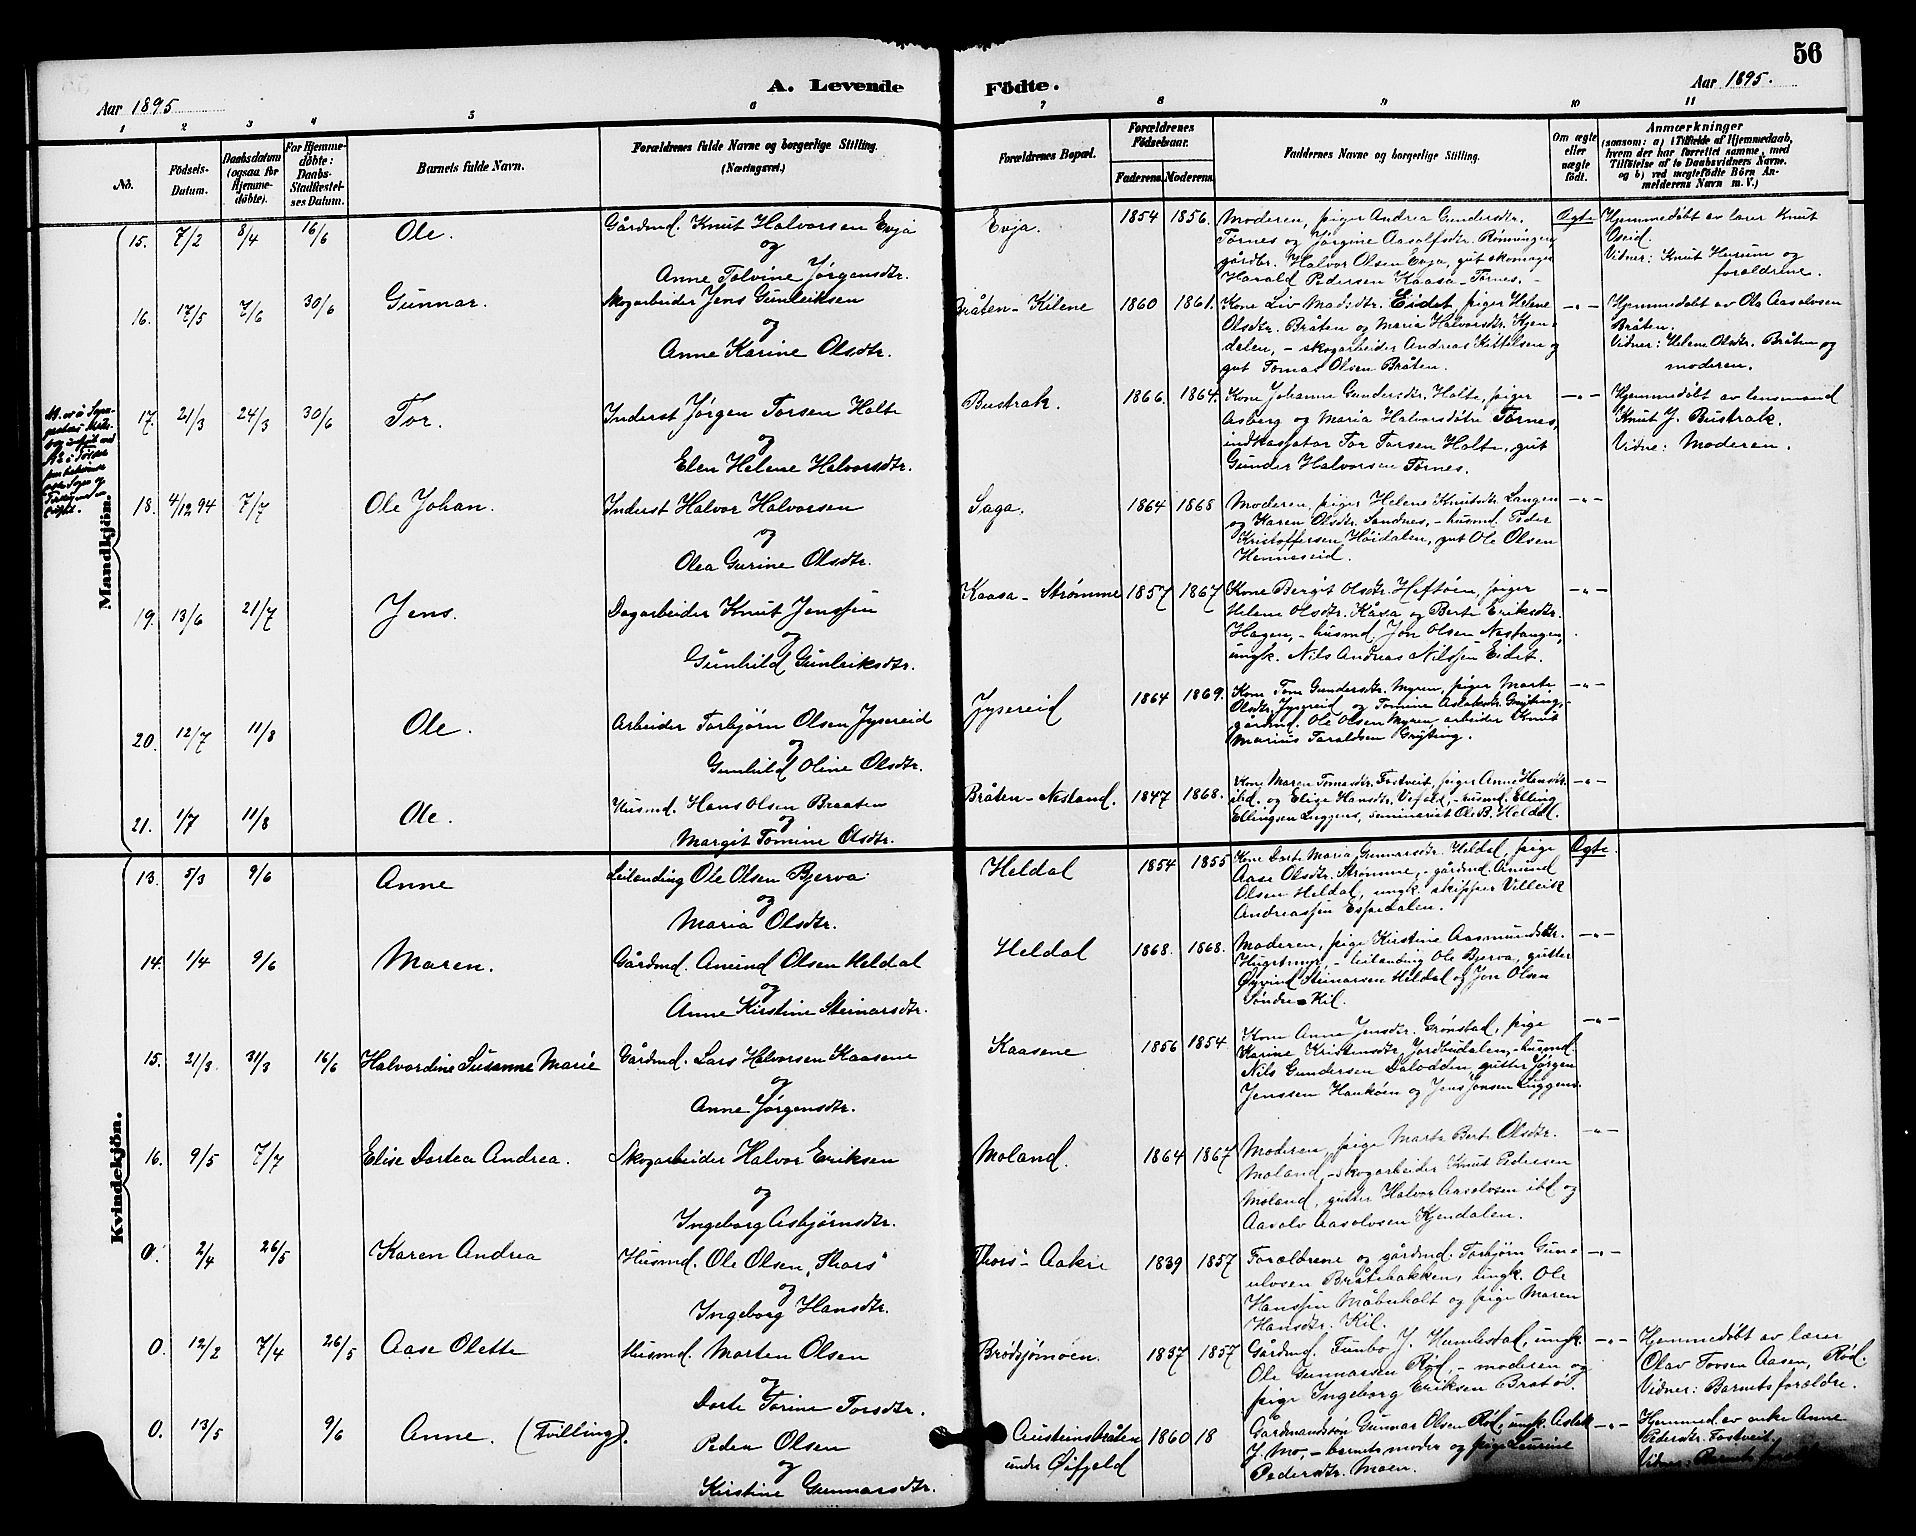 56
A. Levende Födte.
Aar 1895
Aar 1895.
1 2 3 4 5 6 7 8 9 10 11
No.
Födsels-
Datum.
Daabsdatum
(ogsaa for
Hjemme-
döbte).
For Hjemme-
döbte:
Daabs-
Stadfæstel-
ses Datum.
Barnets fulde Navn.
Forældrenes fulde Navne og borgerlige Stilling.
(Næringsvei.)
Forældrenes Bopæl.
Forældrenes
Födselsaar.
Faderens. Moderens.
Faddernes Navne og borgerlige Stilling.
Om ægte
eller
uægte
födt.
Anmærkninger
(saasom: a) i Tilfælde af Hjemmedaab,
hvem der har forrettet samme, med
Tilföielse af to Daabsvidners Navne,
og b) ved uægtefödte Börn An-
melderens Navn m. V.)
Mandkjön.
15. 7/2 8/4 16/6 Ole.
Gårdmd. Knut Halvorsen Evja
og
Anne Tolvine Jørgensdtr.
Evja.
1854 1856.
Moderen, piger Andrea Gundersdtr.
Tornes og Jørgine Aasolfsdtr. Rønningen,
gårdbr. Halvor Olsen Evja, gut skomager
Harald Pedersen Kaasa-Tornes.
Ægte
Hjemmedøbt av lærer Knut
Oseid.
Vidner: Knut Husum og
forældrene.
16. 17/5 7/6 30/6 Gunnar.
Skogarbeider Jens Gunleiksen
og
Anne Karine Olsdtr.
Bråten-Kilene
1860 1861.
Kone Liv Madsdtr. Eidet, piger Helene
Olsdtr. Bråten og Maria Halvorsdtr. Kjen-
dalen, - skogarbeider Andreas Kittelsen og
gut Tomas Olsen Bråten.
-"-
Hjemmedøbt av Ole Aasolvsen
Bråten.
Vidner: Helene Olsdtr. Bråten og
moderen.
17. 21/3 24/3 30/6 Tor.
Inderst Jørgen Torsen Holte
og
Elen Helene Halvorsdtr.
Bustrak.
1866. 1864.
Kone Johanne Gundersdtr. Holte, piger
Asberg og Maria Halvorsdøtre Tornes,
indkassator Tor Torsen Holte, gut
Gunder Halvorsen Tornes.
-"-
Hjemmedøbt av lensmand
Knut J. Bustrak.
Vidne: Moderen.
18. 4/12 94 7/7 Ole Johan.
Inderst Halvor Halvorsen
og
Olea Gurine Olsdtr.
Saga.
1864 1868
Moderen, piger Helene Knutsdtr. Langen
og Karen Olsdtr. Sandnes, - husmd. Peder
Kristoffersen Høidalen, gut Ole Olsen
Henneseid.
-"-
19. 13/6 21/7 Jens.
Dagarbeider Knut Jenssen
og
Gunhild Gunleiksdtr.
Kaasa-Strømme
1857 1867
Kone Bergit Olsdtr. Heftøen, piger
Helene Olsdtr. Kåsa og Berte Eriksdtr.
Hagen, - husmd. Jon Olsen Nestangen,
ungk. Nils Andreas Nilssen Eidet.
-"-
20. 12/7 11/8 Ole.
Arbeider Torbjørn Olsen Jysereid
og
Gunhild Oline Olsdtr.
Jysereid
1864 1869.
Kone Tone Gundersdtr. Myren, piger Marte
Olsdtr. Jysereid og Tomine Aslaksdtr. Grøting,
gårdmd. Ole Olsen Myren, arbeider Knut
Marius Taraldsen Grøting.
-"-
21. 1/7 11/8 Ole.
Husmd. Hans Olsen Braaten
og
Margit Tomine Olsdtr.
Bråten-Nesland.
1847 1868.
Kone Maren Tomasdtr. Fostveit, piger Anne Hansdtr.
ibd. og Elise Hansdtr. Vefald, - husmd. Elling
Ellingsen Luggens, seminarist Ole B. Heldal.
-"-
Kvindekjön.
13. 5/3 9/6 Anne
Leilænding Ole Olsen Bjerva
og
Maria Olsdtr.
Heldal
1854 1855
Kone Dorte Maria Gunnarsdtr. Heldal, pige
Aase Olsdtr. Strømme, - gårdmd. Amund
Olsen Heldal, ungk. skipper Villeik
Andreassen Espedalen.
Ægte.
14. 1/4 9/6 Maren.
Gårdmd. Amund Olsen Heldal
og
Anne Kirstine Steinarsdtr.
Heldal
1868. 1868.
Moderen, pige Kirstine Aasmundsdtr.
- leilænding Ole Bjerva, gutter
Øyvind Steinarsen Heldal og Jon Olsen
Søndre-Kil.
-"-
15. 21/3 31/3 16/6 Halvordine Susanne Marie
Gårdmd. Lars Halvorsen Kaasene
og
Anne Jørgensdtr.
Kaasene
1856 1854.
Kone Anne Jensdtr. Grønstad, pige
Karine Kristensdtr. Jordbudalen, - husmd.
Nils Gundersen Dalodden, gutter Jørgen
Jenssen Haukøen og Jens Jonsen Luggens.
-"-
16. 9/5 7/7 Elise Dortea Andrea.
Skogarbeider Halvor Eriksen
og
Ingeborg Asbjørnsdtr.
Moland.
1864 1867
Moderen, pige Marte Berte Olsdtr.
Moland, - skogarbeider Knut Pedersen
Moland, gutter Halvor Aasolvsen ibd og
Aasolv Aasolvsen Kjendalen.
-"-
0. 2/4 26/5 Karen Andrea
Husmd. Ole Olsen "Thors"
og
Ingeborg Hansdtr.
Thors-Aakre
1839 1857
Forældrene og gårdmd. Torbjørn Gun-
ulvsen Bråtebakken, ungk. Ole
Hanssen Måbuholt og pige Maren
Hansdtr. Kil.
-"-
0. 12/2 7/4 26/5 Aase Olette
Husmd. Morten Olsen
og
Dorte Torine Torsdtr.
Brødsjømoen.
1837 1857
Gårdmd. Tumbo J. Humlestad, ungk.
Ole Gunnarsen Rød, - moderen og
pige Ingeborg Eriksen Bratøi.
-"-
Hjemmedøbt av lærer
Olav Tovsen Aasen, Rød.
Vidner: Barnets forældre.
0. 13/5 9/6 Anne. (Tvilling).
Peder Olsen
og
Kirstine Gunnarsdtr.
Austeinsbråten
under Øifjeld
1860 18
Gårdmandssøn Gunnar Olsen Rød, ungk. Aslak
J. Mo, - barnets moder og pige Laurine
Pedersdtr. Moen.
-"-
Hjemmed. av enke Anne
Pedersdtr. Fostveit.
Vidner: Barnets